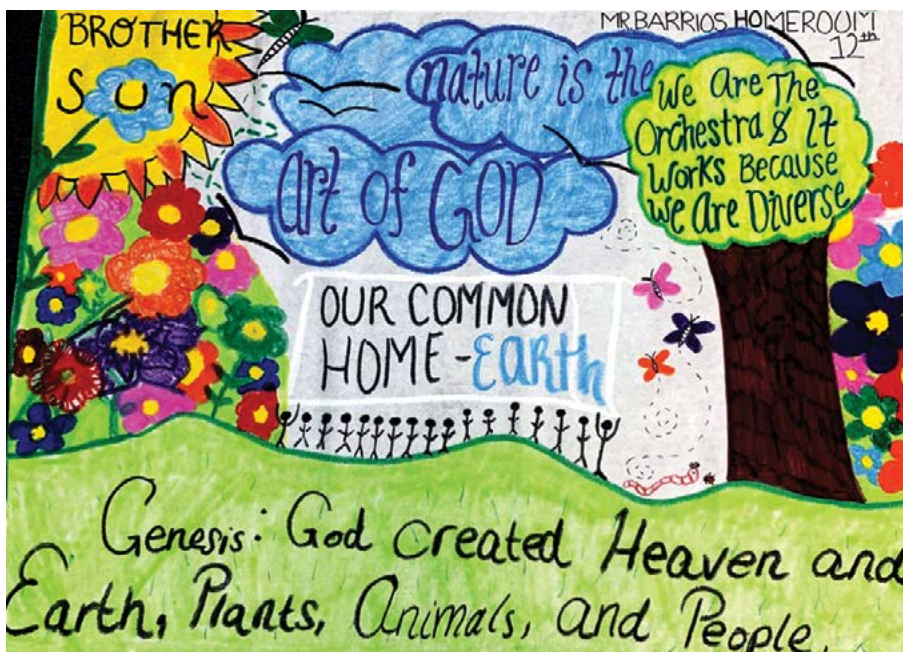 BROTHER
Sun
MR.BARRIOS HOMEROUM
12th
nature is the
art of GOD
We Are The
Orchestra & It
Works Because
We Are Diverse
OUR COMMON
HOME-EARth
Genesis: God created Heaven and
Earth, Plants, Animals, and People.